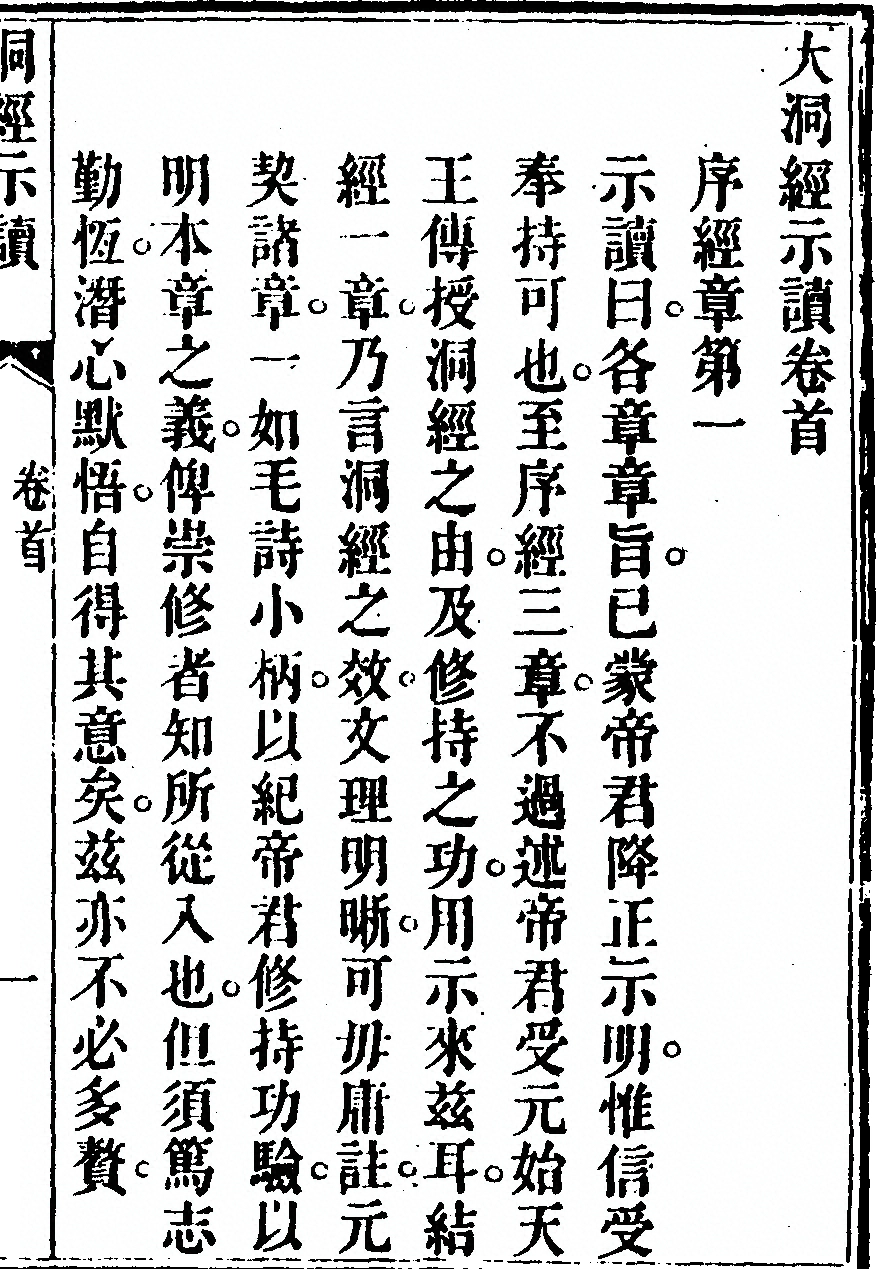 大洞經示讀卷首
序經章第一
示讀曰。各章章旨。已蒙帝君降正示明。惟信受
奉持可也。至序經三章。不過述帝君受元始天
王傳授洞經之由。及修持之功。用示來茲耳。結
經一章。乃言洞經之效。文理明晰。可毋庸註。元
契諸章。一如毛詩小柄。以紀帝君修持功驗。以
明本章之義。俾崇修者知所從入也。但須篤志
勤恆。潛心默悟。自得其意矣。茲亦不必多贅。
洞經示讀
卷首
一